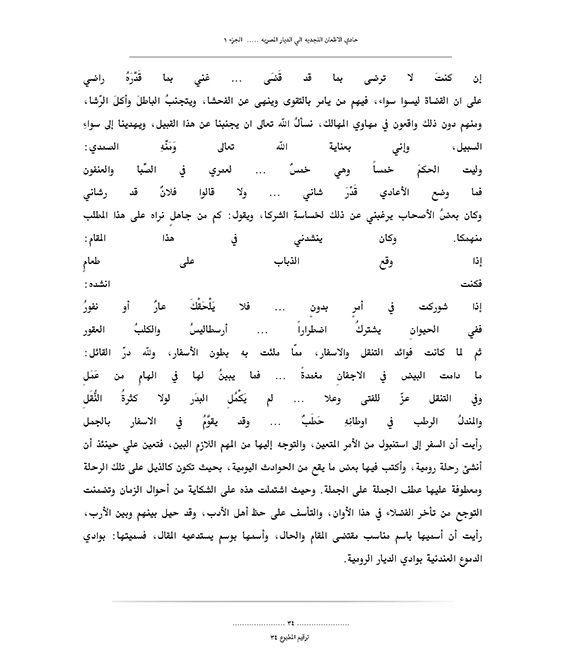 حادي الاظعان النجديه الي الديار المصريه ...... الجزء ١
إن كنتَ لا ترضى بما قد قَضَى ... غني بما قَدَّرَهُ راضي
على ان القضاة ليسوا سواء، فيهم من يامر بالتقوى وينهى عن الفحشا، ويتجنبُ الباطلَ وأكلَ الرِّشا،
ومنهم دون ذلك واقعون في مهاوي المهالك، نسألُ الله تعالى ان يجنبنا عن هذا القبيل، ويهدينا إلى سواءِ
السبيل، وإني بعناية الله تعالى وَمَنِّهِ الصمدي:
وليت الحكمَ خمساً وهي خمسٌ ... لعمري في الصِّبا والعنفون
فما وضع الأعادي قَدْرَ شاني ... ولا قالوا فلانٌ قد رشاني
وكان بعضُ الأصحاب يرغبني عن ذلك لخساسةِ الشركا، ويقول: كم من جاهلٍ نراه على هذا المطلب
منهمكا. وكان ينشدني في هذا المقام:
إذا وقع الذباب على طعامٍ
فكنت انشده:
إذا شوركت في أمرٍ بدونٍ ... فلا يَلْحَقْكَ عارٌ أو نفورُ
ففي الحيوانِ يشتركُ اضطراراً ... أرسطاليسُ والكلبُ العقور
ثم لما كانت فوائد التنقل والاسفار، ممّا ملئت به بطون الأسفار، ولله درّ القائل:
ما دامت البيض في الاجفانِ مغمدةً ... فما يبينُ لها في الهامِ من عَمَلِ
وفي التنقل عزّ للفتى وعلا ... لم يَكْمُلِ البدَر لولا كثرةُ النُّقَلِ
والمندلُ الرطب في اوطانِهِ حَطَبٌ ... وقد يقوَّمُ في الاسفار بالجمل
رأيت أن السفر إلى استنبول من الأمر المتعين، والتوجه إليها من المهم اللازم البين، فتعين علي حينئذ أن
أنشئ رحلة رومية، وأكتب فيها بعض ما يقع من الحوادث اليومية، بحيث تكون كالذيل على تلك الرحلة
ومعطوفة عليها عطف الجملة على الجملة. وحيث اشتملت هذه على الشكاية من أحوال الزمان وتضمنت
التوجع من تأخر الفضلاء في هذا الأوان، والتأسف على حظ أهل الأدب، وقد حيل بينهم وبين الأرب،
رأيت أن أسميها باسم مناسب مقتضى المقام والحال، وأسمها بوسم يستدعيه المقال، فسميتها: بوادي
الدموع العندنية بوادي الديار الرومية.
...................... ٣٤ ......................
ترقيم المطبوع ٣٤